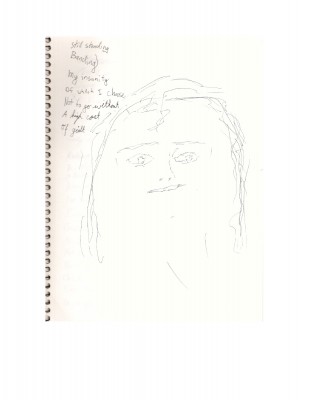 still standing
Bending)
My insanity
Is what I chose
Not to go without
A coat
Of